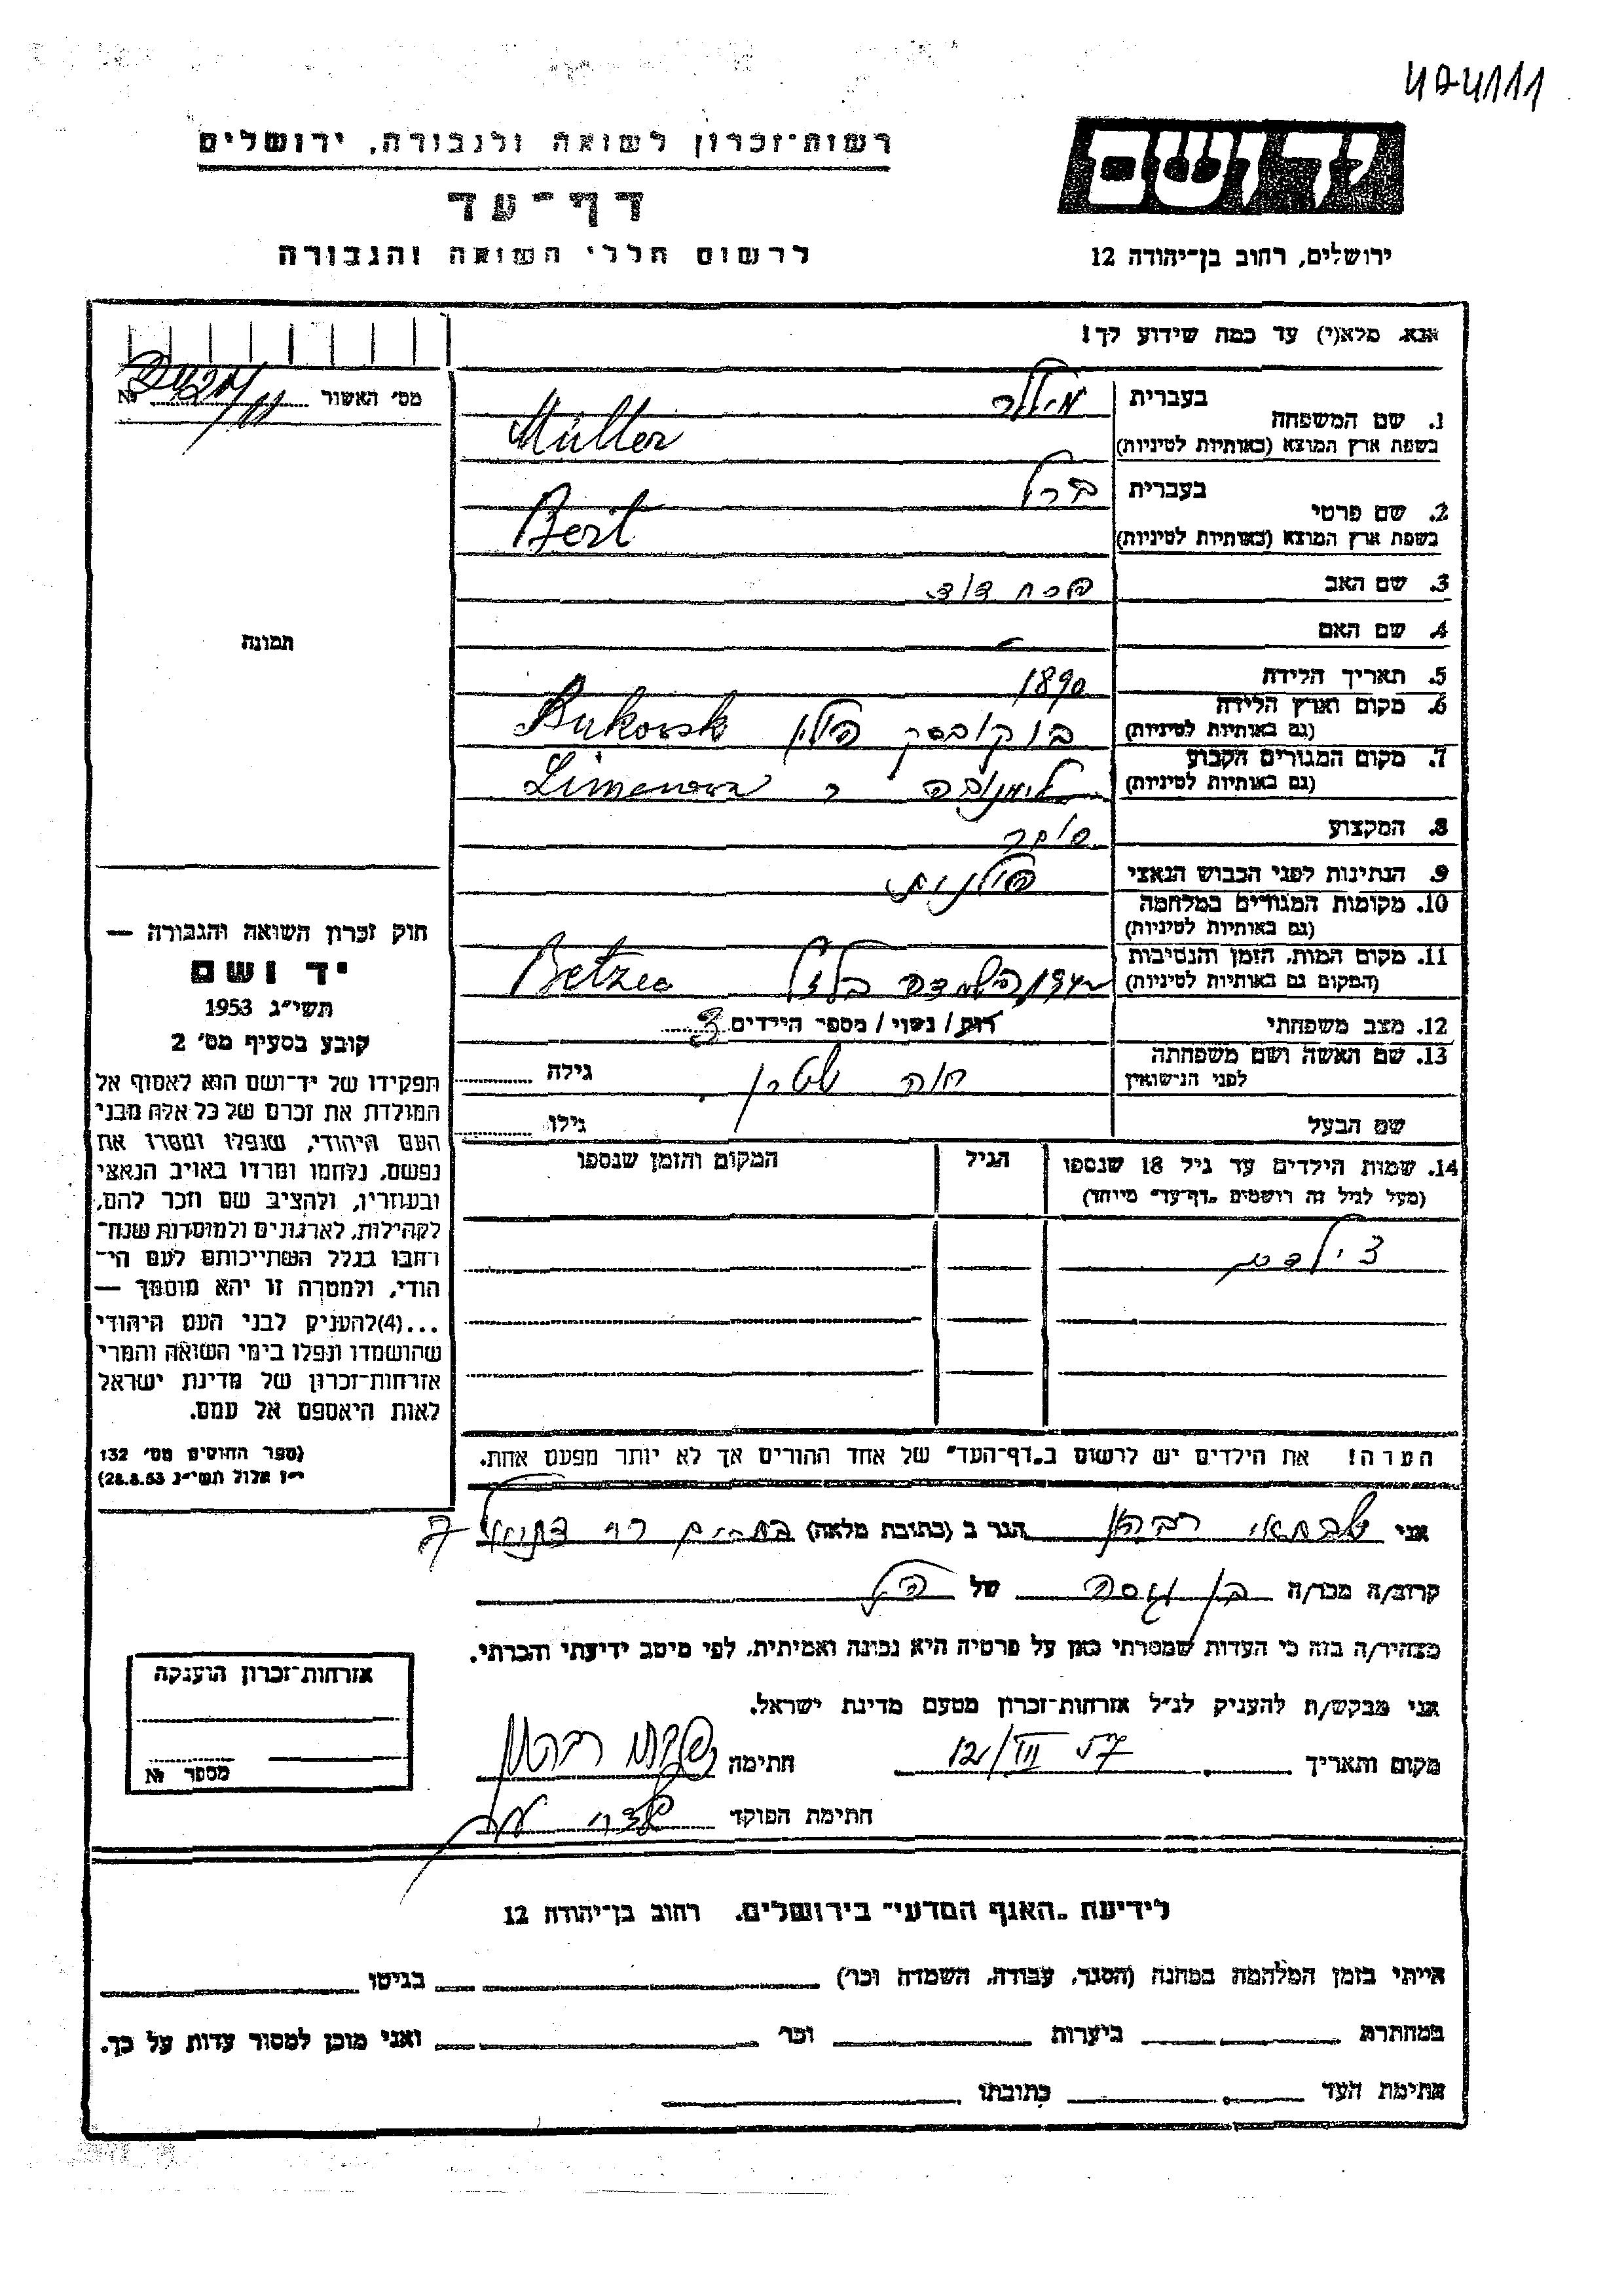 474111
יד ושם
ירושלים, רחוב בן־יהודה 12
רשות־זכרון לשואה ולגבורה, ירושלים
דף־עד
לרשום חללי השואה והגבורה
אנא, מלא(י) עד כמה שידוע לך!
מס׳ האשור №
1. שם המשפחה
בעברית מילר
בשפת ארץ המוצא (באותיות לטיניות) Müller
2. שם פרטי
בעברית ברל
בשפת ארץ המוצא (באותיות לטיניות) Bert
3. שם האב פסח דוד
4. שם האם -
5. תאריך הלידה 1890
6. מקום וארץ הלידה
(גם באותיות לטיניות) בוקובסק פולין Bukovsk
7. מקום המגורים הקבוע
(גם באותיות לטיניות) לימנובה Limanowa
8. המקצוע סוחר
9. הנתינות לפני הכבוש הנאצי פולנית
10. מקומות המגורים במלחמה
(גם באותיות לטיניות)
11. מקום המות, הזמן והנסיבות
(המקום גם באותיות לטיניות) השמדה בלזץ Betzec
12. מצב משפחתי רוק / נשוי / מספר הילדים 3
13. שם האשה ושם משפחתה
לפני הנישואין חוה שטרן גילה
שם הבעל גילו
14. שמות הילדים עד גיל 18 שנספו
(מעל לגיל זה רושמים „דף־עד״ מיוחד)
הגיל
המקום והזמן שנספו
3 ילדים
הערה! את הילדים יש לרשום ב„דף־העד״ של אחד ההורים אך לא יותר מפעם אחת.
תמונה
חוק זכרון השואה והגבורה —
יד ושם
תשי״ג 1953
קובע בסעיף מס׳ 2
תפקידו של יד־ושם הוא לאסוף אל
המולדת את זכרם של כל אלה מבני
העם היהודי, שנפלו ומסרו את
נפשם, נלחמו ומרדו באויב הנאצי
ובעוזריו, ולהציב שם וזכר להם,
לקהילות, לארגונים ולמוסדות שנח־
רבו בגלל השתייכותם לעם הי־
הודי, ולמטרה זו יהא מוסמך —
...(4)להעניק לבני העם היהודי
שהושמדו ונפלו בימי השואה והמרי
אזרחות־זכרון של מדינת ישראל
לאות היאספם אל עמם.
(ספר החוקים מס׳ 132
י״ז אלול תשי״ג 28.8.53)
אני שבתאי הגר ב (כתובת מלאה) 7
קרוב/ה מכר/ה בן גיסה של הנ״ל
מצהיר/ה בזה כי העדות שמסרתי כאן על פרטיה היא נכונה ואמיתית, לפי מיטב ידיעתי והכרתי.
אני מבקש/ת להעניק לנ״ל אזרחות־זכרון מטעם מדינת ישראל.
מקום ותאריך 12/III 57 חתימה
חתימת הפוקד
אזרחות־זכרון הוענקה
מספר №
לידיעת „האגף המדעי״ בירושלים, רחוב בן־יהודה 12
הייתי בזמן המלחמה במחנה (הסגר, עבודה, השמדה וכו׳) בגיטו
במחתרת ביערות וכו׳ ואני מוכן למסור עדות על כך.
חתימת העד כתובתו